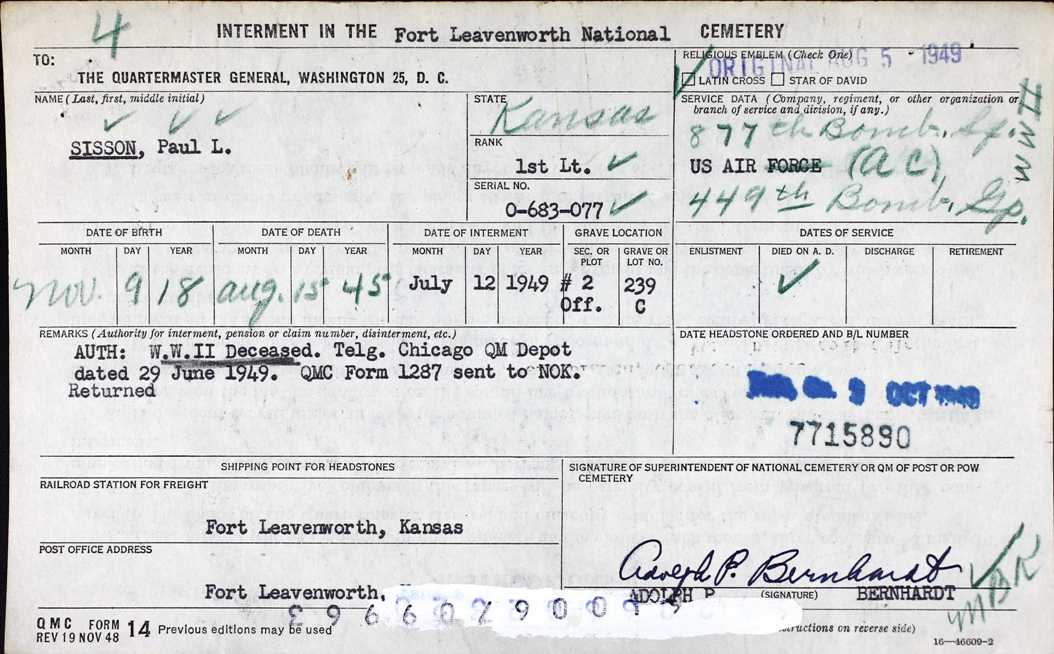 4
INTERMENT IN THE Fort Leavenworth National CEMETERY
TO:
THE QUARTERMASTER GENERAL, WASHINGTON 25, D. C.
RELIGIOUS EMBLEM (Check One)
ORIGINAL AUG 5 1949
LATIN CROSS STAR OF DAVID
NAME (Last, first, middle initial)
SISSON, Paul L.
STATE
Kansas
RANK
1st Lt.
SERIAL NO.
O-683-077
SERVICE DATA (Company, regiment, or other organization or branch of service and division, if any.)
877th Bomb. Sq.
US AIR FORCE (AC)
449th Bomb. Gp.
DATE OF BIRTH
MONTH DAY YEAR
Nov. 9 18
DATE OF DEATH
MONTH DAY YEAR
Aug. 15 45
DATE OF INTERMENT
MONTH DAY YEAR
July 12 1949
GRAVE LOCATION
SEC. OR PLOT
GRAVE OR LOT NO.
# 2 239
Off. C
DATES OF SERVICE
ENLISTMENT DIED ON A. D. DISCHARGE RETIREMENT
REMARKS (Authority for interment, pension or claim number, disinterment, etc.)
AUTH: W.W.II Deceased. Telg. Chicago QM Depot
dated 29 June 1949. QMC Form 1287 sent to NOK.
Returned
DATE HEADSTONE ORDERED AND B/L NUMBER
3 OCT 1949
7715890
SHIPPING POINT FOR HEADSTONES
RAILROAD STATION FOR FREIGHT
Fort Leavenworth, Kansas
POST OFFICE ADDRESS
Fort Leavenworth,
SIGNATURE OF SUPERINTENDENT OF NATIONAL CEMETERY OR QM OF POST OR POW CEMETERY
Adolph P. Bernhardt
ADOLPH P. (SIGNATURE) BERNHARDT
QMC FORM 14
REV 19 NOV 48
Previous editions may be used
(Instructions on reverse side)
16—46609-2